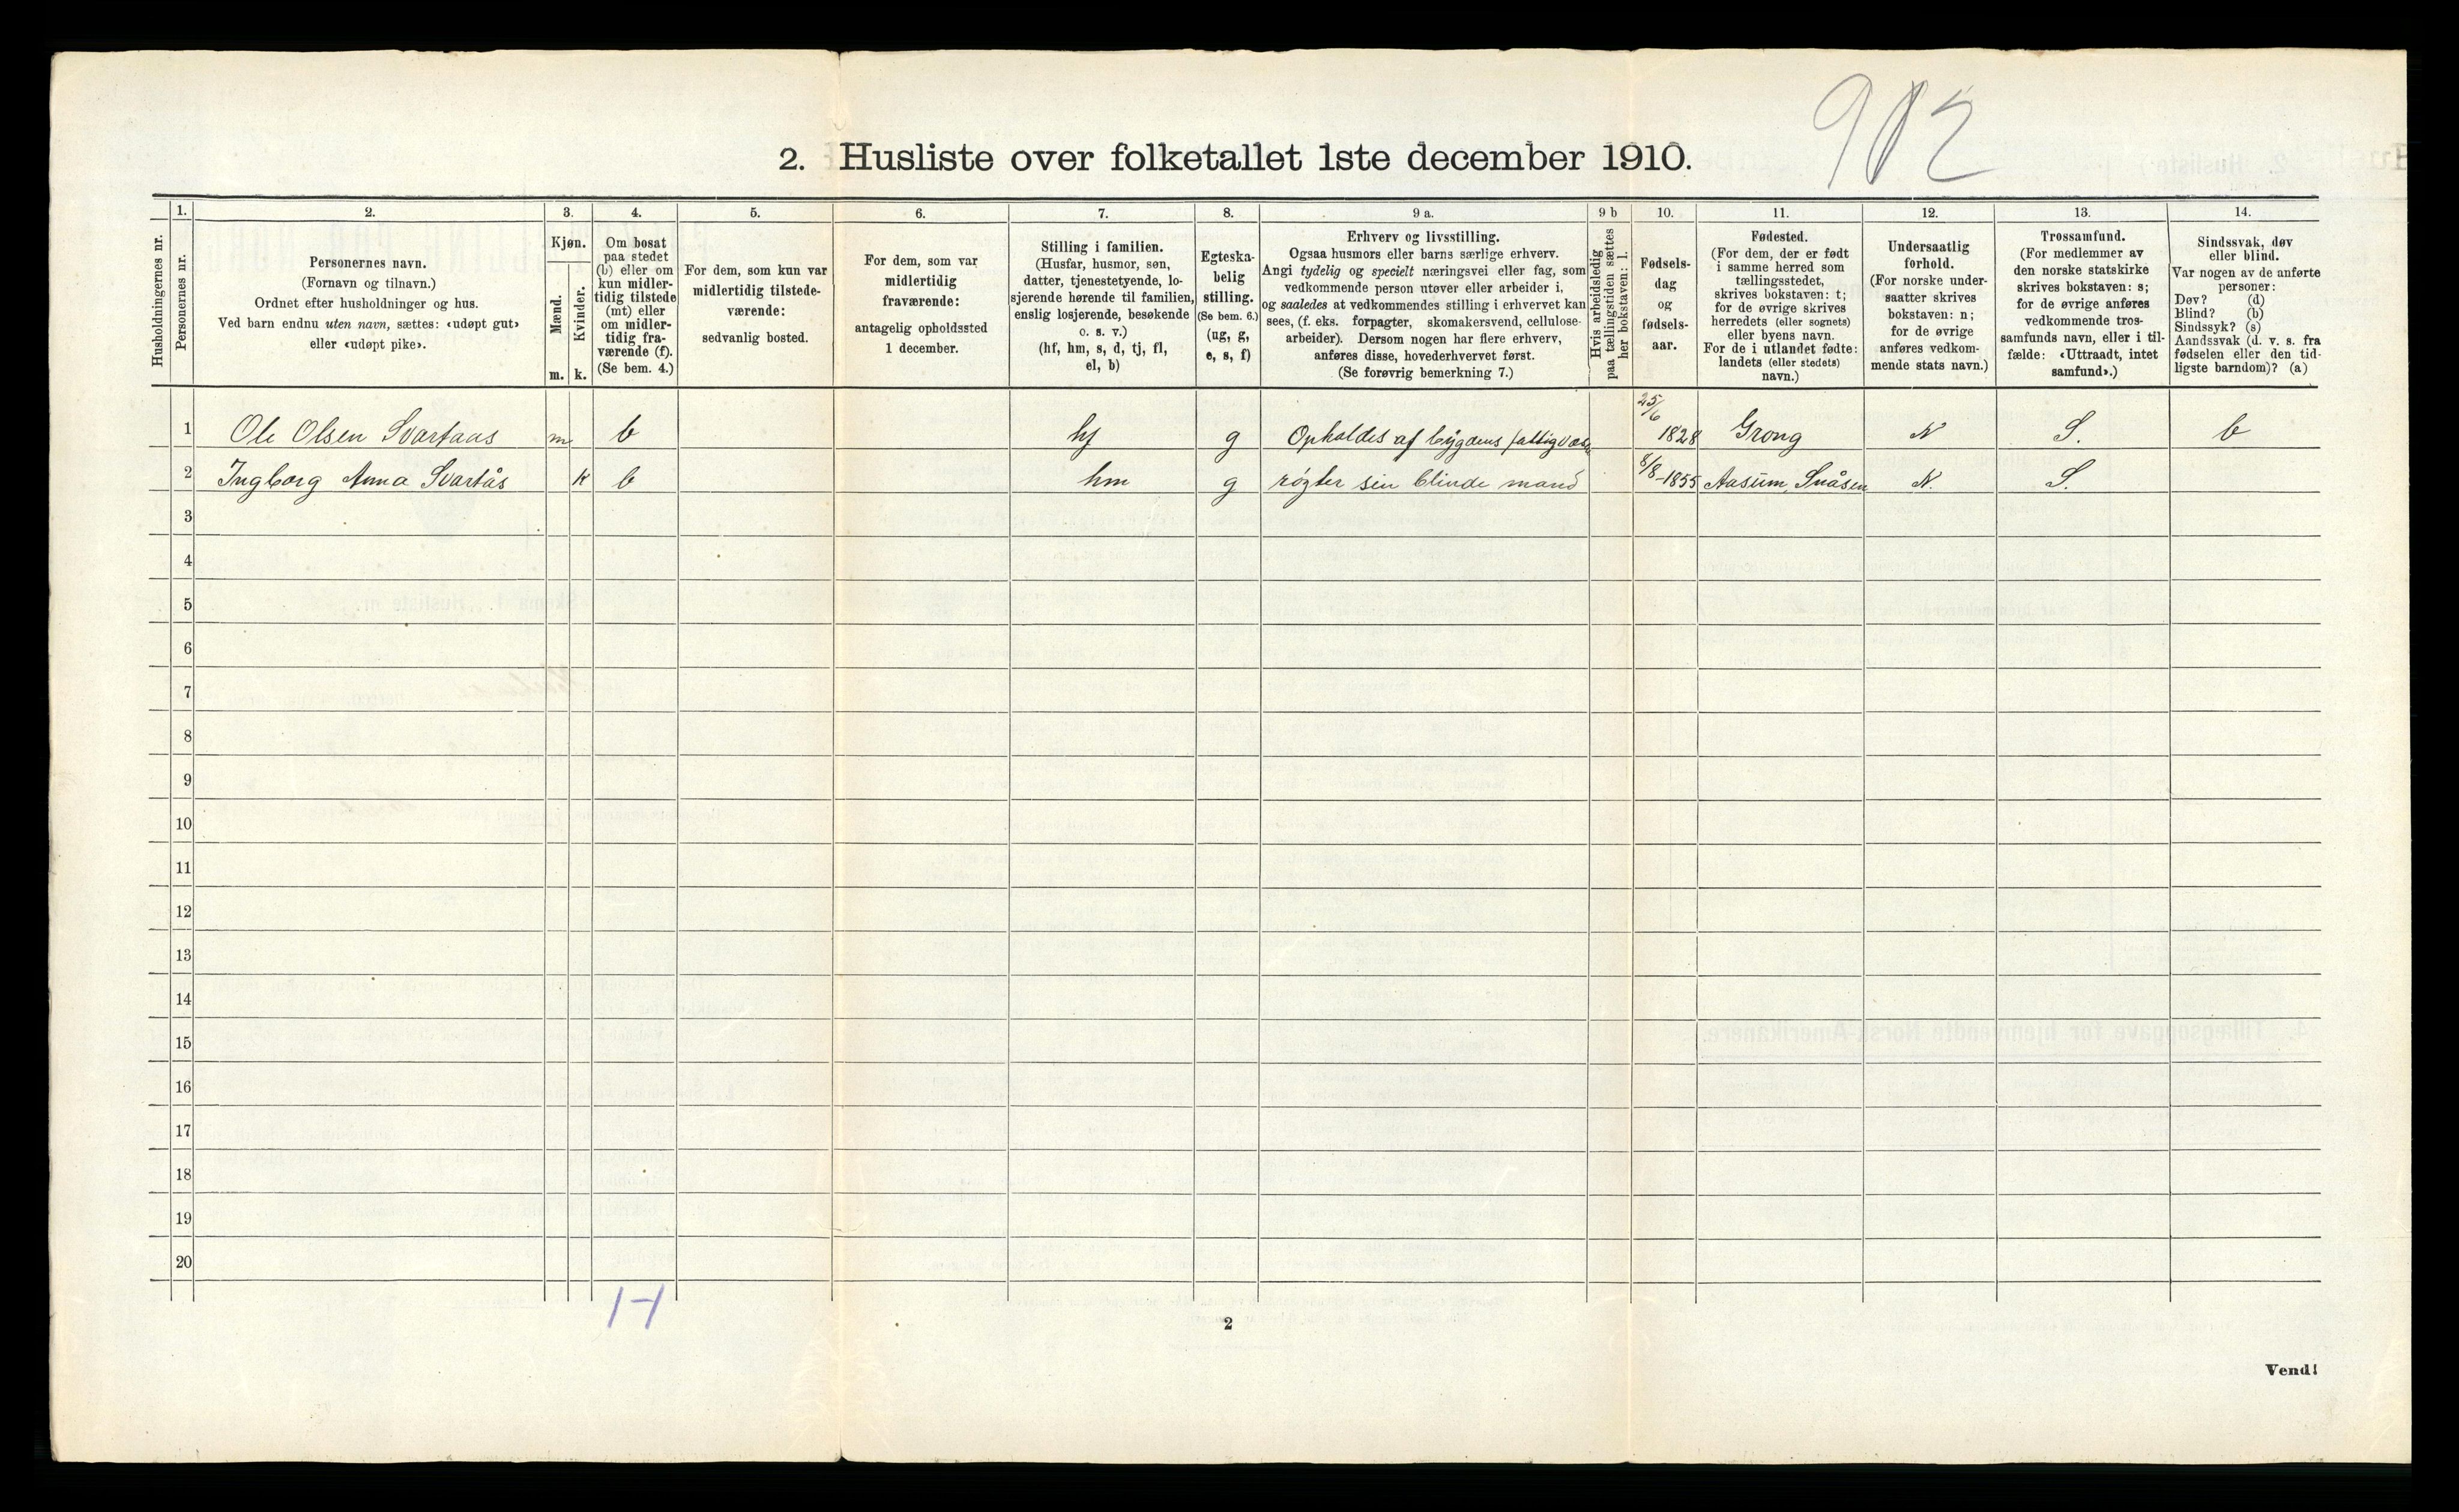 912
2. Husliste over folketallet 1ste december 1910.
Husholdningernes nr.
1.
Personernes nr.
2.
Personernes navn.
(Fornavn og tilnavn.)
Ordnet efter husholdninger og hus.
Ved barn endnu uten navn, sættes: «udøpt gut»
eller «udøpt pike».
3.
Kjøn.
Mænd.
Kvinder.
m.
k.
4.
Om bosat
paa stedet
(b) eller om
kun midler-
tidig tilstede
(mt) eller
om midler-
tidig fra-
værende (f).
(Se bem. 4.)
5.
For dem, som kun var
midlertidig tilstede-
værende:
sedvanlig bosted.
6.
For dem, som var
midlertidig
fraværende:
antagelig opholdssted
1 december.
7.
Stilling i familien.
(Husfar, husmor, søn,
datter, tjenestetyende, lo-
sjerende hørende til familien,
enslig losjerende, besøkende
o. s. v.)
(hf, hm, s, d, tj, fl,
el, b)
8.
Egteska-
belig
stilling.
(Se bem. 6.)
(ug, g,
e, s, f)
9 a.
Erhverv og livsstilling.
Ogsaa husmors eller barns særlige erhverv.
Angi tydelig og specielt næringsvei eller fag, som
vedkommende person utøver eller arbeider i,
og saaledes at vedkommendes stilling i erhvervet kan
sees, (f. eks. forpagter, skomakersvend, cellulose-
arbeider). Dersom nogen har flere erhverv,
anføres disse, hovederhvervet først.
(Se forøvrig bemerkning 7.)
9 b
Hvis arbeidsledig
paa tællingstiden sættes
her bokstaven: l.
10.
Fødsels-
dag
og
fødsels-
aar.
11.
Fødested.
(For dem, der er født
i samme herred som
tællingsstedet,
skrives bokstaven: t;
for de øvrige skrives
herredets (eller sognets)
eller byens navn.
For de i utlandet fødte:
landets (eller stedets)
navn.)
12.
Undersaatlig
forhold.
(For norske under-
saatter skrives
bokstaven: n;
for de øvrige
anføres vedkom-
mende stats navn.)
13.
Trossamfund.
(For medlemmer av
den norske statskirke
skrives bokstaven: s;
for de øvrige anføres
vedkommende tros-
samfunds navn, eller i til-
fælde: «Uttraadt, intet
samfund».)
14.
Sindssvak, døv
eller blind.
Var nogen av de anførte
personer:
Døv? (d)
Blind? (b)
Sindssyk? (s)
Aandssvak (d. v. s. fra
fødselen eller den tid-
ligste barndom)? (a)
1 Ole Olsen Svartaas m b hf g Opholdes af bygdens fattigvæsen 25/6 1828 Grong N S. b
2 Ingborg Anna Svartås k b hm g røgter sin blinde mand 8/8-1855 Aasum, Snåsen N. S.
3
4
5
6
7
8
9
10
11
12
13
14
15
16
17
18
19
20
1-1
2
Vend!